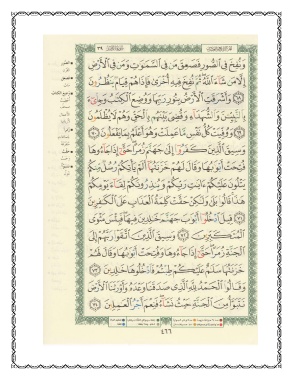 وَنُفِخَ فِي ٱلصُّورِ فَصَعِقَ مَن فِي ٱلسَّمَٰوَٰتِ وَمَن فِي ٱلْأَرْضِ
إِلَّا مَن شَآءَ ٱللَّهُ ثُمَّ نُفِخَ فِيهِ أُخْرَىٰ فَإِذَا هُمْ قِيَامٌ يَنظُرُونَ
﴿٦٨﴾ وَأَشْرَقَتِ ٱلْأَرْضُ بِنُورِ رَبِّهَا وَوُضِعَ ٱلْكِتَٰبُ وَجِاْيٓءَ
بِٱلنَّبِيِّـۧنَ وَٱلشُّهَدَآءِ وَقُضِيَ بَيْنَهُم بِٱلْحَقِّ وَهُمْ لَا يُظْلَمُونَ
﴿٦٩﴾ وَوُفِّيَتْ كُلُّ نَفْسٍ مَّا عَمِلَتْ وَهُوَ أَعْلَمُ بِمَا يَفْعَلُونَ ﴿٧٠﴾
وَسِيقَ ٱلَّذِينَ كَفَرُوٓا۟ إِلَىٰ جَهَنَّمَ زُمَرًا حَتَّىٰٓ إِذَا جَآءُوهَا
فُتِحَتْ أَبْوَٰبُهَا وَقَالَ لَهُمْ خَزَنَتُهَآ أَلَمْ يَأْتِكُمْ رُسُلٌ مِّنكُمْ
يَتْلُونَ عَلَيْكُمْ ءَايَٰتِ رَبِّكُمْ وَيُنذِرُونَكُمْ لِقَآءَ يَوْمِكُمْ
هَٰذَا قَالُوا۟ بَلَىٰ وَلَٰكِنْ حَقَّتْ كَلِمَةُ ٱلْعَذَابِ عَلَى ٱلْكَٰفِرِينَ
﴿٧١﴾ قِيلَ ٱدْخُلُوٓا۟ أَبْوَٰبَ جَهَنَّمَ خَٰلِدِينَ فِيهَا فَبِئْسَ مَثْوَى
ٱلْمُتَكَبِّرِينَ ﴿٧٢﴾ وَسِيقَ ٱلَّذِينَ ٱتَّقَوْا۟ رَبَّهُمْ إِلَى
ٱلْجَنَّةِ زُمَرًا حَتَّىٰٓ إِذَا جَآءُوهَا وَفُتِحَتْ أَبْوَٰبُهَا وَقَالَ لَهُمْ
خَزَنَتُهَا سَلَٰمٌ عَلَيْكُمْ طِبْتُمْ فَٱدْخُلُوهَا خَٰلِدِينَ ﴿٧٣﴾
وَقَالُوا۟ ٱلْحَمْدُ لِلَّهِ ٱلَّذِي صَدَقَنَا وَعْدَهُۥ وَأَوْرَثَنَا ٱلْأَرْضَ
نَتَبَوَّأُ مِنَ ٱلْجَنَّةِ حَيْثُ نَشَآءُ فَنِعْمَ أَجْرُ ٱلْعَٰمِلِينَ ﴿٧٤﴾
٤٦٦